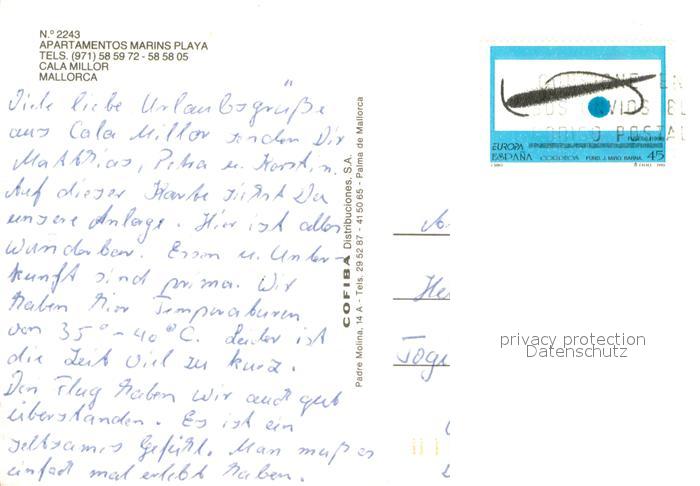 N.º 2243
APARTAMENTOS MARINS PLAYA
TELS. (971) 58 59 72 - 58 58 05
CALA MILLOR
MALLORCA
Viele liebe Urlaubsgrüße
aus Cala Millor senden Dir
Matthias, Petra u. Kerstin.
Auf dieser Karte siehst Du
unsere Anlage. Hier ist alles
wunderbar. Essen u. Unter-
kunft sind prima. Wir
haben hier Temperaturen
von 35° - 40°C. Leider ist
die Zeit viel zu kurz.
Den Flug haben wir auch gut
überstanden. Es ist ein
seltsames Gefühl. Man muß es
einfach mal erlebt haben.
COFIBA Distribuciones, S.A.
Padre Molina, 14 A - Tels. 29 52 87 - 41 50 65 - Palma de Mallorca
EUROPA
ESPAÑA CORREOS FUND. J. MIRO. BARNA. 45
ENVIOS
CODIGO POSTAL
privacy protection
Datenschutz